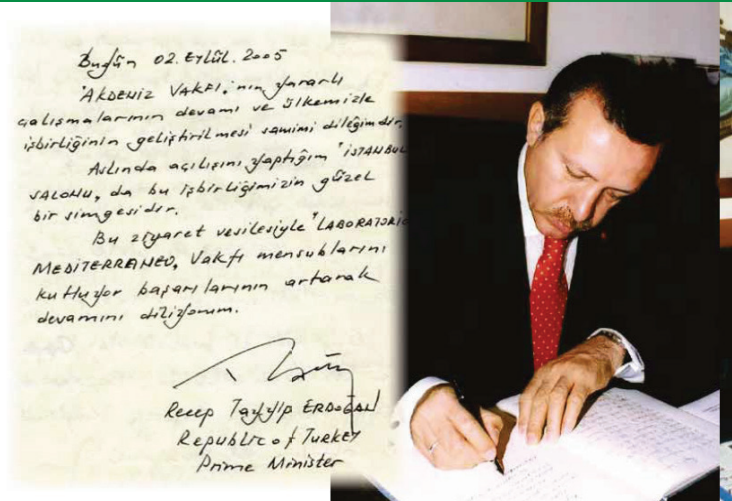 Bugün 02.Eylül.2005
"AKDENİZ VAKFI,'nın yararlı
çalışmalarının devamı ve ülkemizle
işbirliğinin geliştirilmesi samimi dileğimdir.
Aslında açılışını yaptığım "İSTANBUL
SALONU, da bu işbirliğimizin güzel
bir simgesidir.
Bu ziyaret vesilesiyle "LABORATORIO
MEDITERRANEO, Vakfı mensublarını
kutluyor başarılarının artarak
devamını diliyorum.
Recep Tayyip ERDOĞAN
Republic of TURKEY
Prime Minister